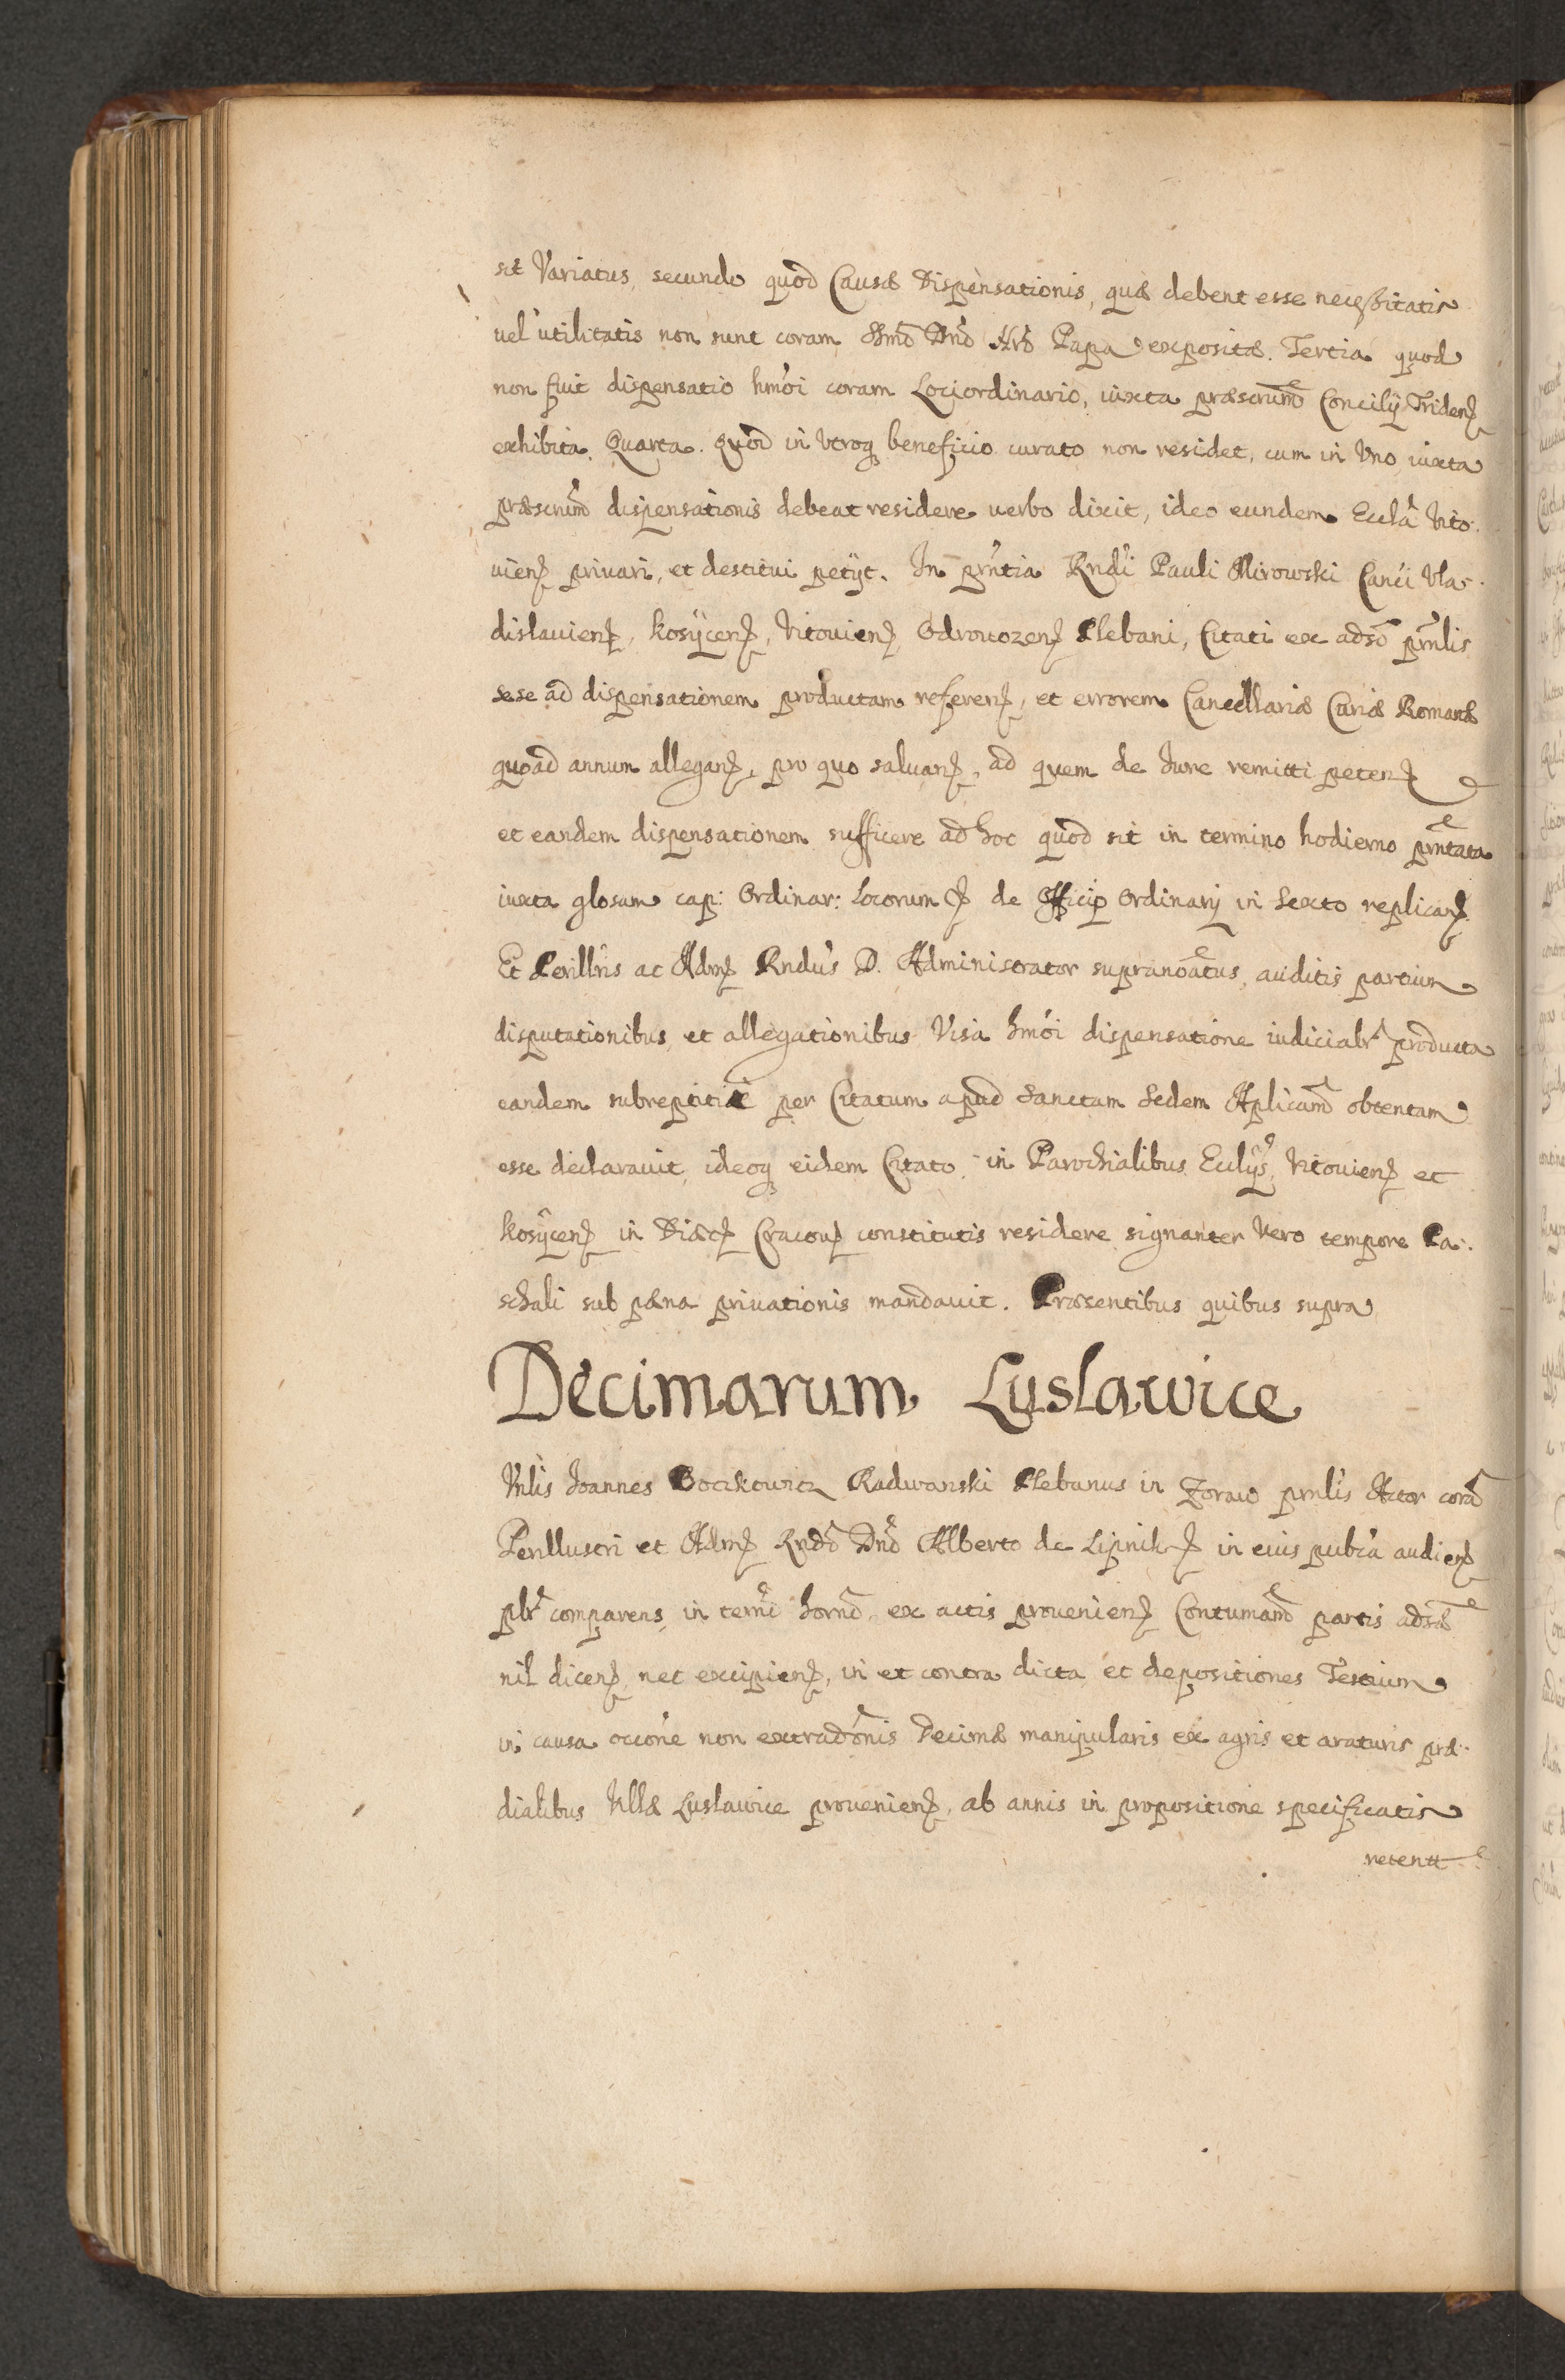 sit Variatus, secundo quod Causæ Dispensationis, quæ debent esse necessitatis
uel utilitatis non sunt coram Ssmo Dno Nro Papa expositæ. Tertia quod
non fuit dispensatio hmoi coram Lociordinario, iuxta præscrum Concilij Triden
exhibita. Quarta. Quod in Utroq beneficio curato non residet, cum in Uno iuxta
præscrum dispensationis debeat residere uerbo dixit, ideo eundem Eccla Vito
uien priuari, et destitui petijt. In pntia Rndi Pauli Mirowski Canci Vla-
dislauien, Kosycen, Vitouien Odrowozen Plebani, Citati ex adso pnlis
sese ad dispensationem productam referen, et errorem Cancellariæ Curiæ Romanæ
quoad annum allegan, pro quo saluan, ad quem de Iure remitti peten
et eandem dispensationem sufficere ad hoc quod sit in termino hodierno pntata
iuxta glosam cap: Ordinar: Locorum de Officio Ordinarij in Sexto replican
Et Perillris ac Adm Rndus D. Administrator supranoatus, auditis partium
disputationibus et allegationibus Visa hmoi dispensatione iudicialr producta
eandem subreptitiæ per Citatum apud Sanctam Sedem Aplicam obtentam
esse declarauit, ideoq eidem Citato in Parochialibus Ecclijs, Vitouien et
Kosycen in Diæc Cracou constitutis residere signanter Vero tempore Pa-
schali sub pæna priuationis mandauit. Præsentibus quibus supra
Decimarum Luslawice
Vnlis Ioannes Boczkowicz Radwanski Plebanus in Zoraw pnlis Actor cora
Perillustri et Adm Rndo Dno Alberto de Lipnik in eius pubca audien
plr comparens in termi horno ex actis prouenien Contumam partis adsæ
nil dicen nec excipien, in et contra dicta et depositiones Testium
in causa occone non extradonis Decimæ manipularis ex agris et araturis præ-
dialibus Villæ Luslawice prouenien, ab annis in propositione specificatis
retent